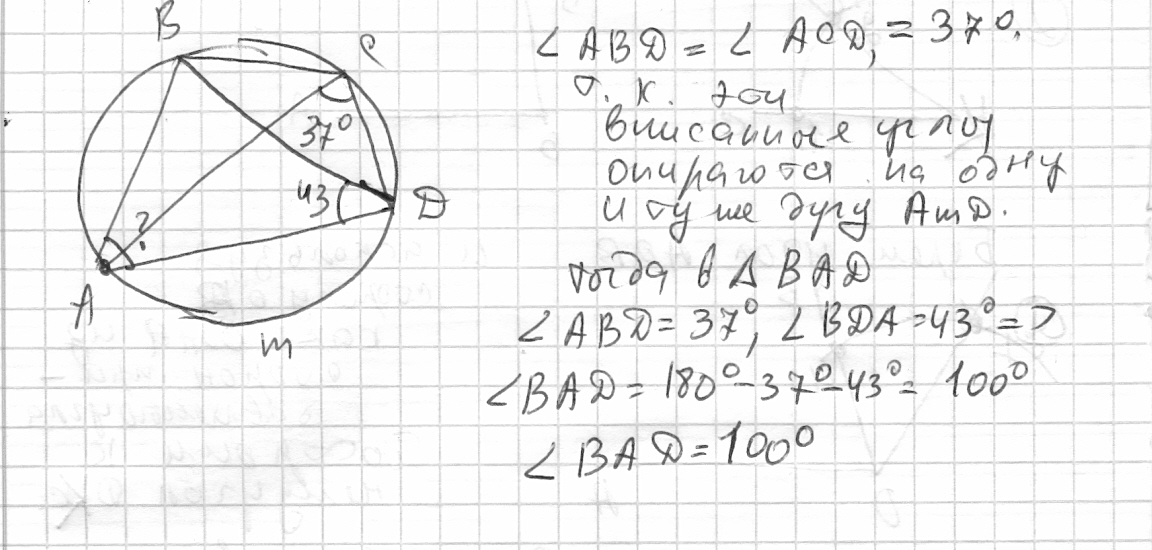 B
C
37°
43
D
?
A
m
∠ ABD = ∠ ACD, = 37°.
т. к. эти
вписанные углы
опираются на одну
и ту же дугу AmD.
тогда в Δ BAD
∠ ABD = 37°, ∠ BDA = 43° =>
∠ BAD = 180° - 37° - 43° = 100°
∠ BAD = 100°